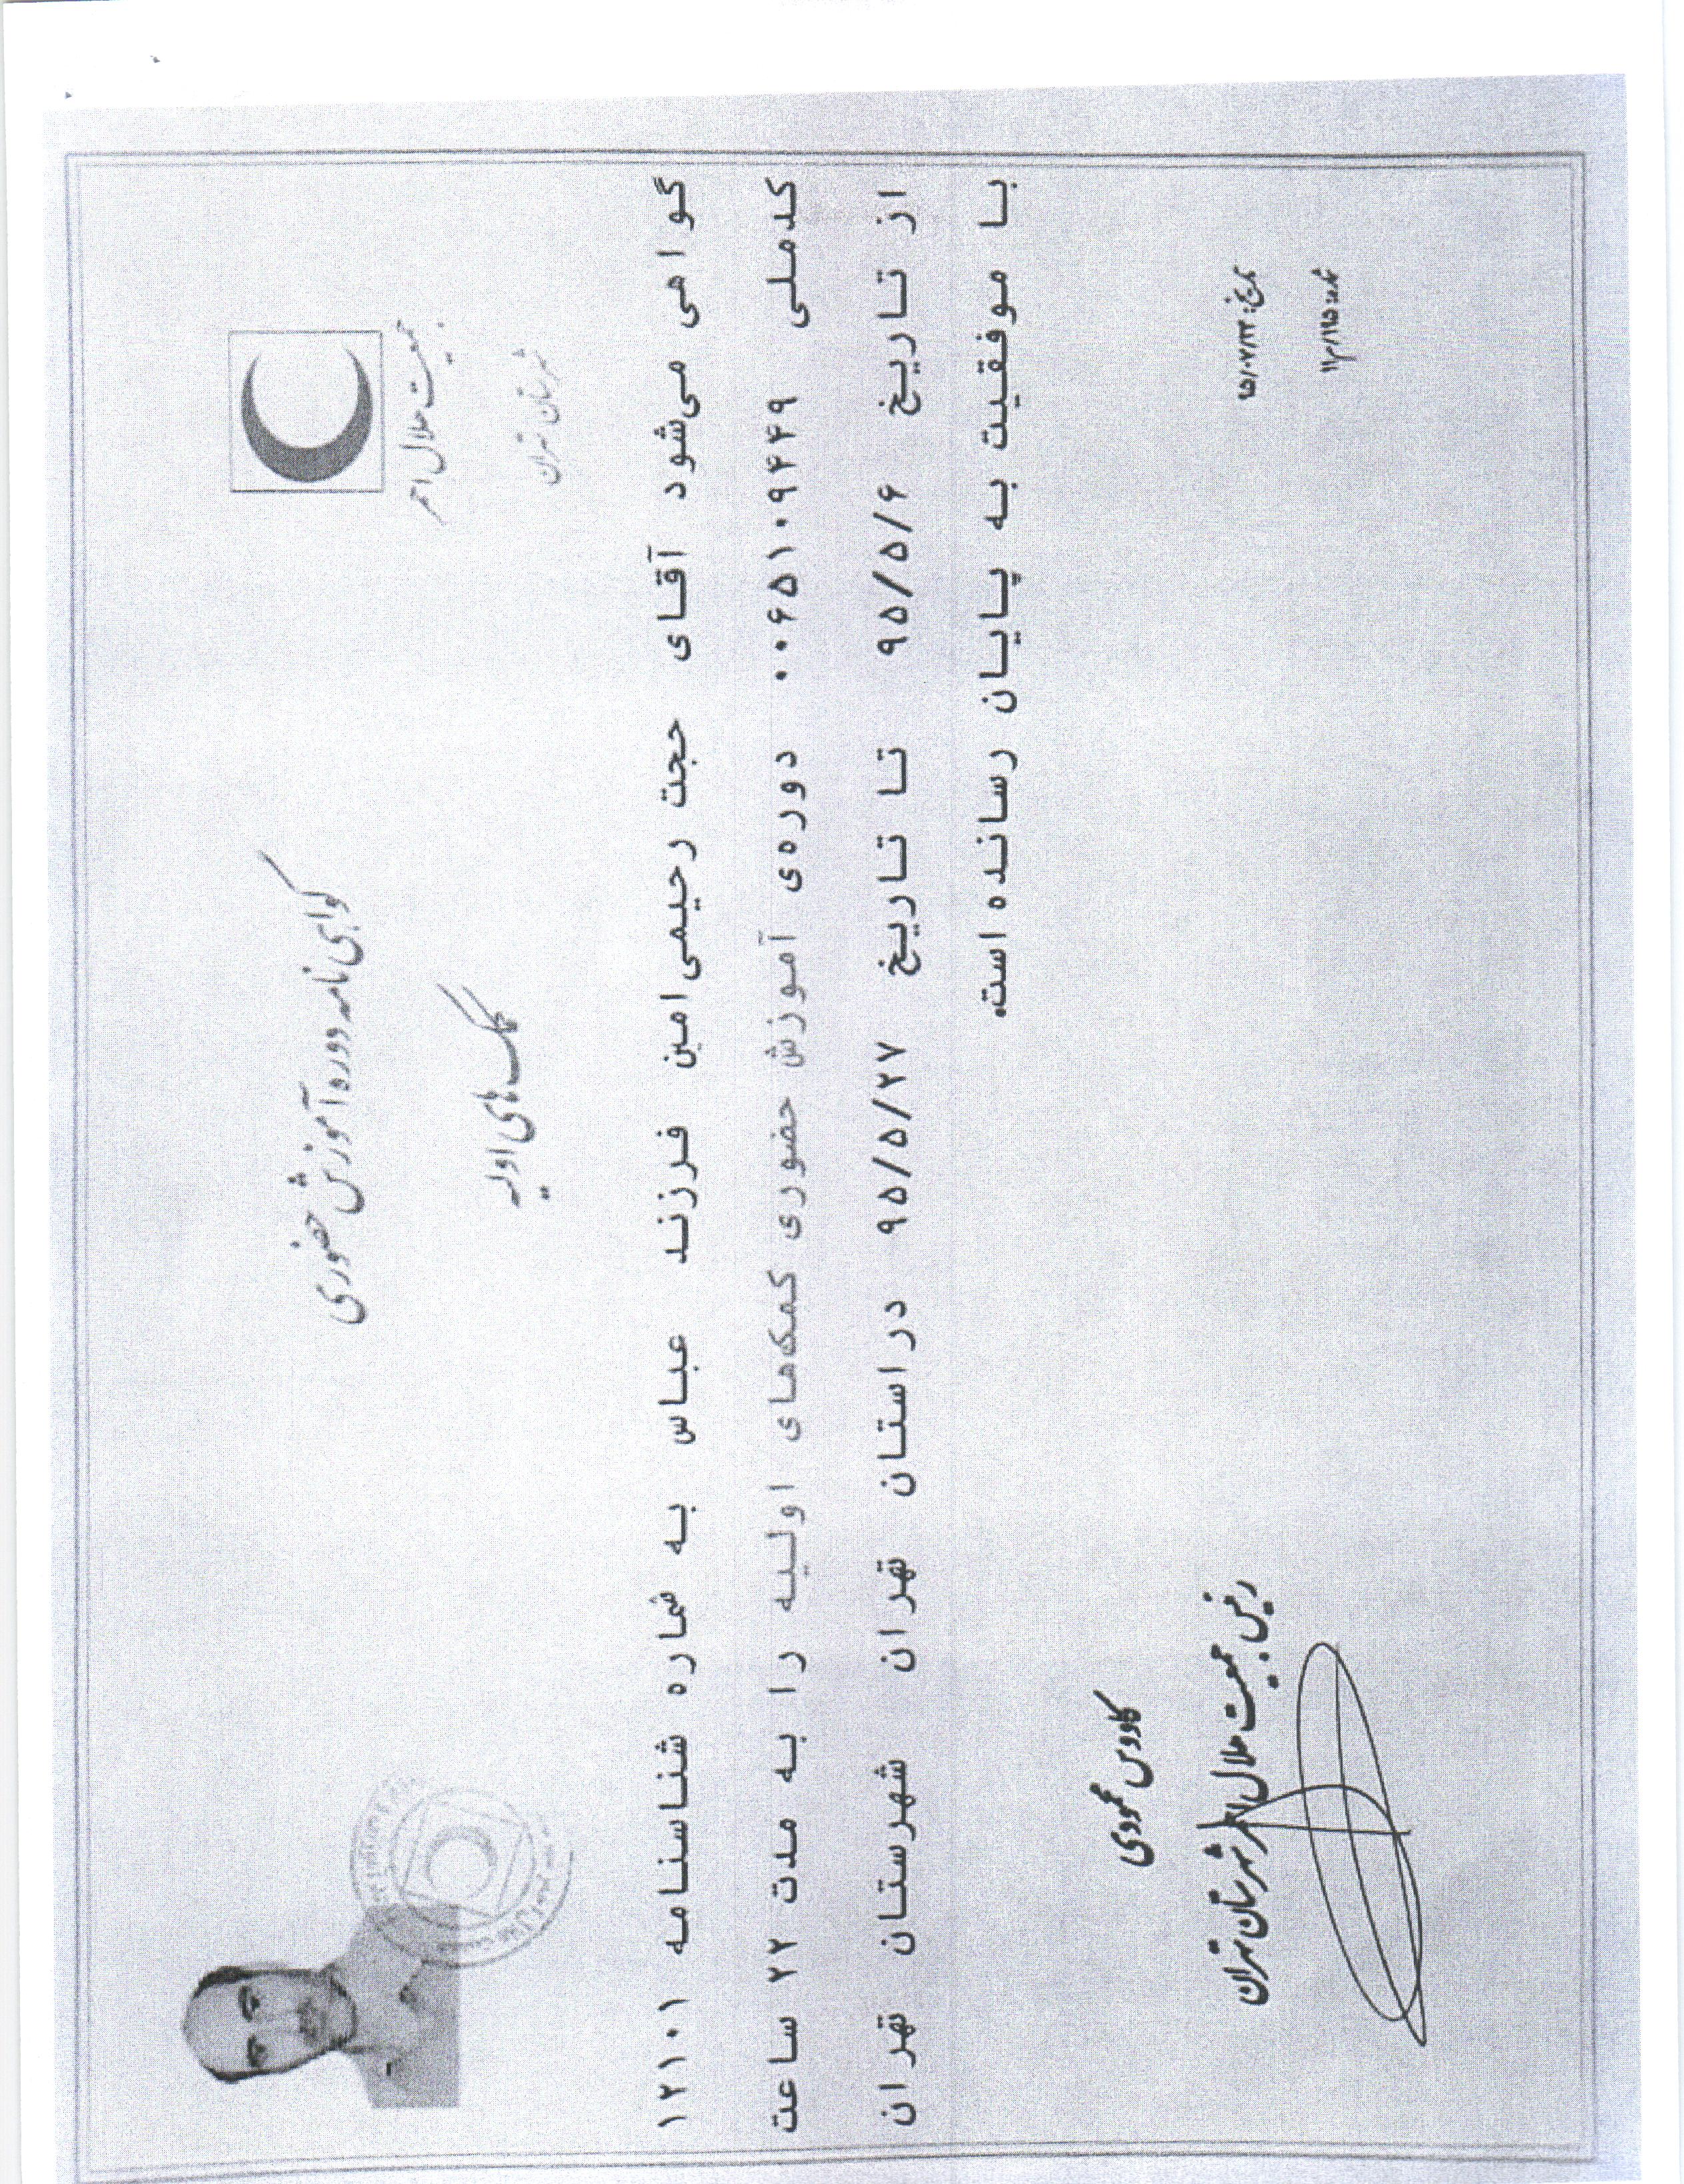 جمعیت هلال احمر
شهرستان تهران
گواهی نامه دوره آموزش حضوری
کمک های اولیه
گواهی می‌شود آقای حجت رحیمی‌امین فرزند عباس به شماره شناسنامه ۱۲۱۰۱
کدملی ۰۰۶۵۱۰۹۴۴۹ دوره‌ی آموزش حضوری کمک‌های اولیه را به مدت ۲۲ ساعت
از تاریخ ۹۵/۵/۶ تا تاریخ ۹۵/۵/۲۷ در استان تهران شهرستان تهران
با موفقیت به پایان رسانده است.
کاووس محمودی
رئیس جمعیت هلال احمر شهرستان تهران
تاریخ: ۹۵/۰۷/۲۲
شماره: